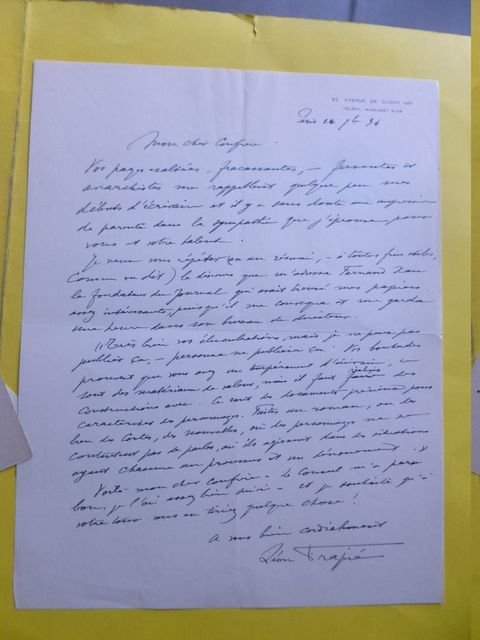 AVENUE DE CLICHY
TÉLÉPH. MARCADET
Paris 7bre 34
Mon cher Confrère -
Vos pages exaltées, fracassantes, - ferventes et
anarchistes me rappellent quelque peu mes
débuts d'écrivain et il y a sans doute une impression
de parenté dans la sympathie que j'éprouve pour
vous et votre talent.
Je veux vous répéter (en un résumé, - à toutes fins utiles,
comme on dit) le discours que m'adressa Fernand Xau
le fondateur du Journal qui avait trouvé mes papiers
assez intéressants, puisqu'il me convoqua et me garda
une heure dans son bureau de directeur.
"Très bien vos élucubrations, mais je ne peux pas
publier ça, - personne ne publiera ça. Vos boutades
prouvent que vous avez un tempérament d'écrivain, ce
sont des matériaux de valeur, mais il faut faire des
constructions avec. Ce sont les documents précieux pour
caractériser des personnages. Faites un roman, ou
bien des contes, des nouvelles, où les personnages ne se
contentent pas de parler, où ils agissent dans des situations
ayant chacune un processus et un dénouement.
Voilà mon cher confrère - le conseil m'a paru
bon, je l'ai assez bien suivi - et je souhaite qu'à
votre tour vous en tiriez quelque chose!
A vous bien cordialement
Léon Frapié